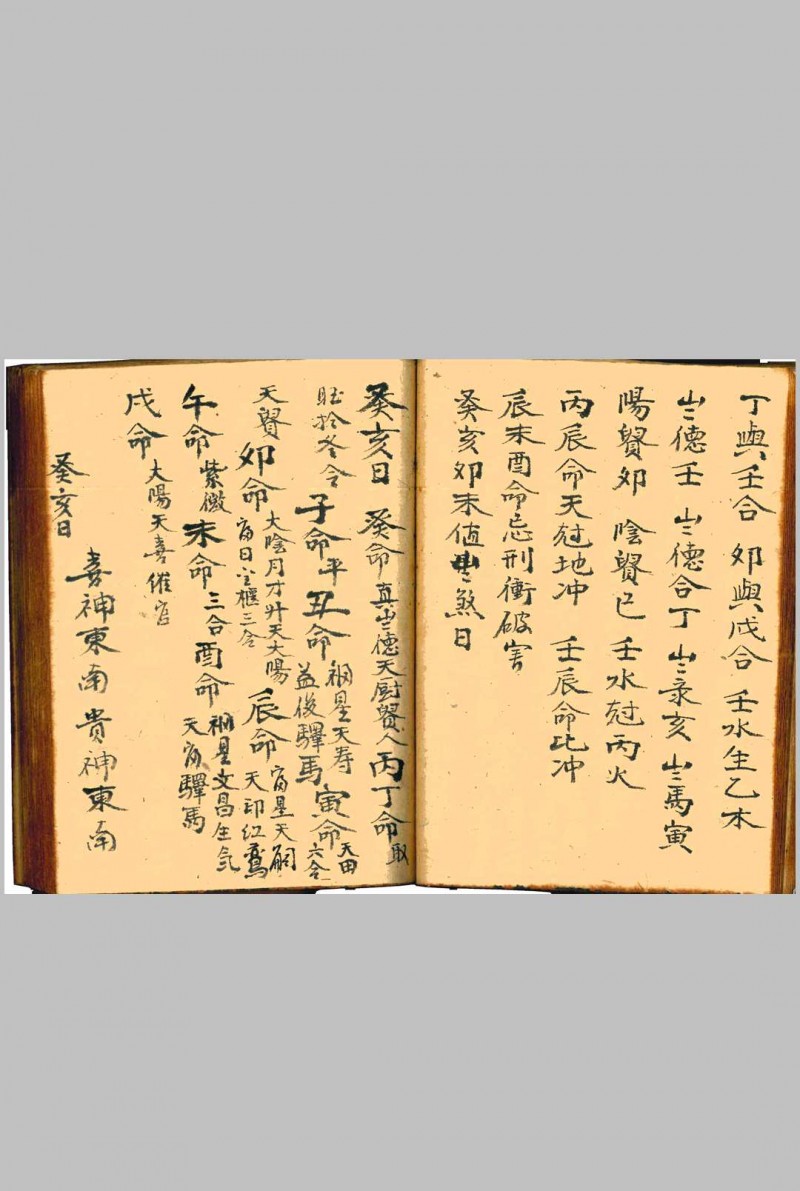 丁與壬合 卯與戌合 壬水生乙木
岁德壬 岁德合丁 岁录亥 岁馬寅
陽貿卯 陰貿巳 壬水尅丙火
丙辰命天尅地冲 壬辰命比冲
辰未酉命忌刑衝破害
癸亥卯未值岁煞日
癸亥日 癸命 真岁德天厨貿人 丙丁命 取
旺於冬令 子命 平 丑命 福星天寿 益後驛馬 寅命 天田 六合
天貿 卯命 大陰月才升天大陽 富日 三合 辰命 富星天嗣 天印红鸾
午命 紫微 未命 三合 酉命 福星文昌生気 天富驛馬
戌命 大陽天喜催官
癸亥日 喜神東南 貴神東南